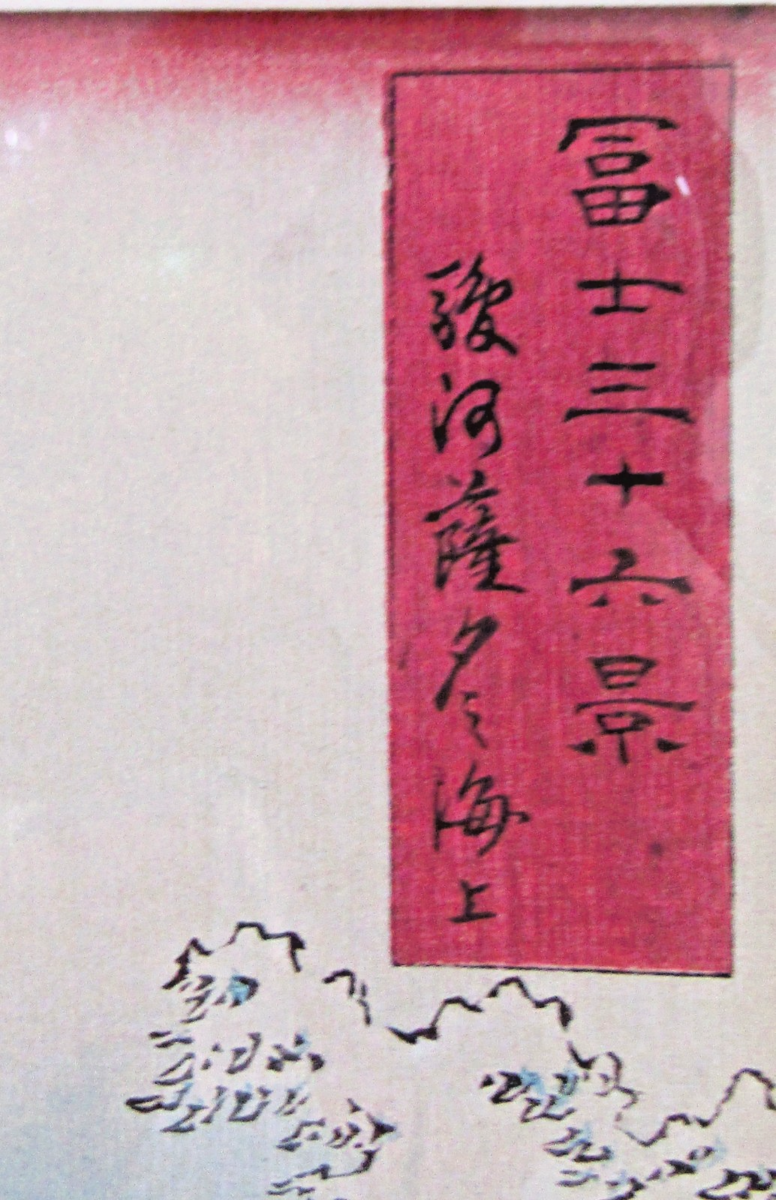 冨士三十六景
駿河薩タ之海上